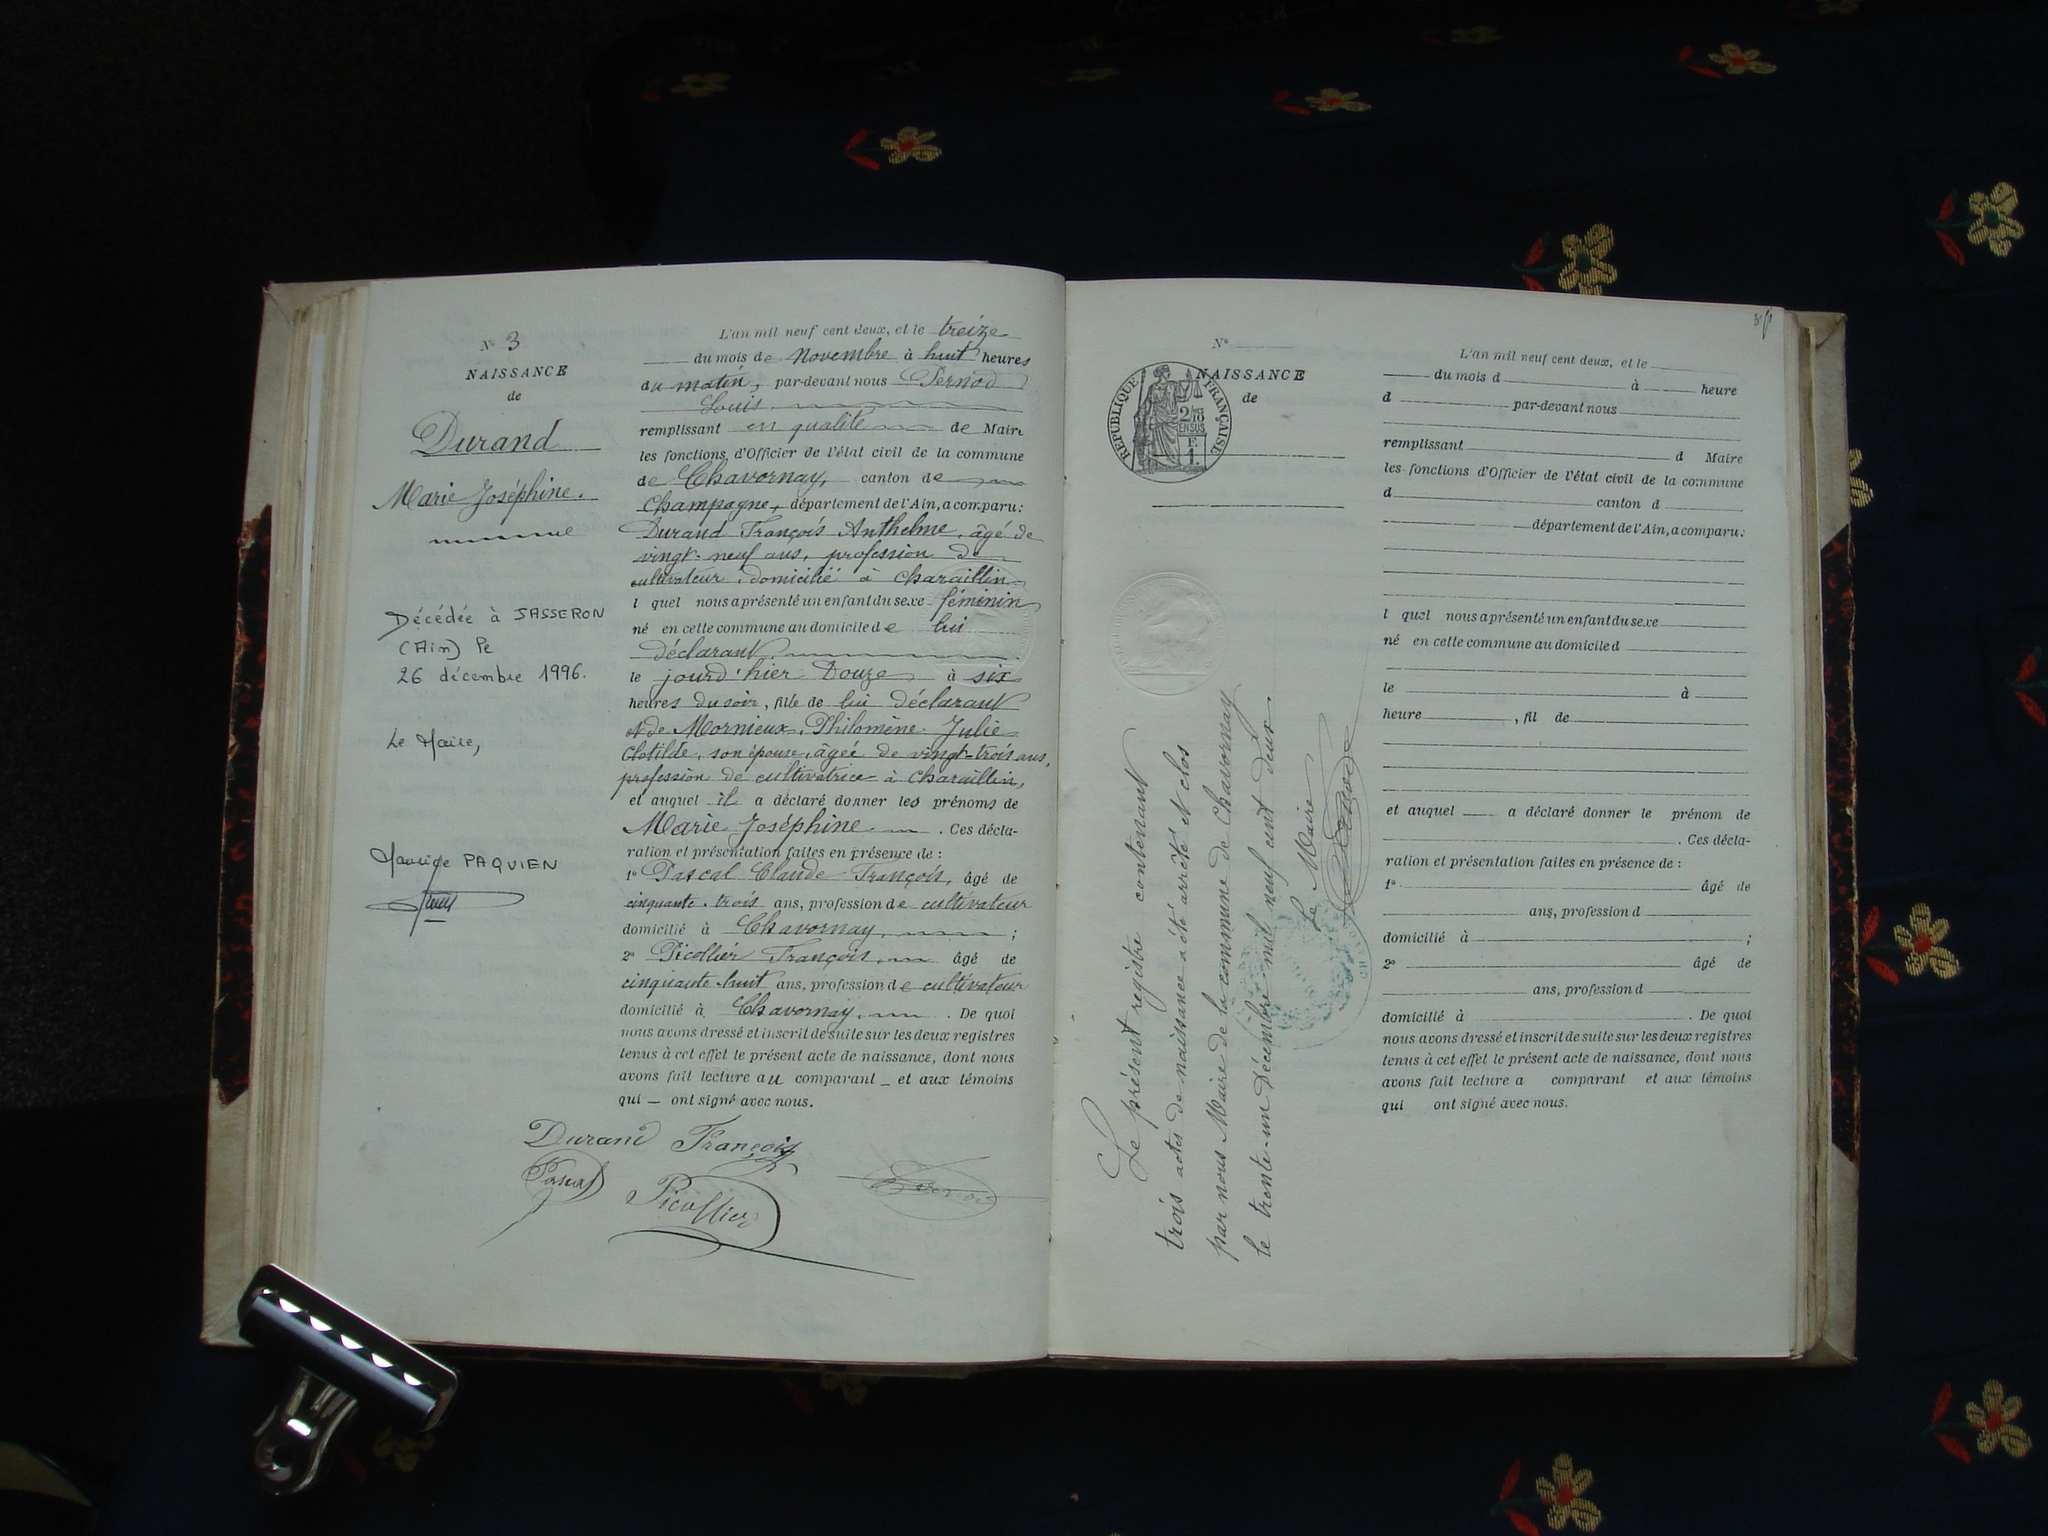 N° 3
NAISSANCE
de
Durand
Marie Joséphine.
Décédée à JASSERON
(Ain) le
26 décembre 1996.
Le Maire,
Maurice PAQUIEN
L'an mil neuf cent deux, et le treize
du mois de Novembre à huit heures
du matin, par-devant nous Pernod
Louis
remplissant en qualité de Maire
les fonctions d'Officier de l'état civil de la commune
de Chavornay, canton de
Champagne, département de l'Ain, a comparu:
Durand François Anthelme, âgé de
vingt-neuf ans, profession de
cultivateur, domicilié à Charaillin
l quel nous a présenté un enfant du sexe féminin
né en cette commune au domicile de lui
déclarant
le jourd'hier Douze à six
heures du soir, fille de lui déclarant
et de Mornieux Philomène Julie
Clotilde, son épouse, âgée de vingt-trois ans,
profession de cultivatrice à Charaillin,
et auquel il a déclaré donner les prénoms de
Marie Joséphine. Ces décla-
ration et présentation faites en présence de :
1° Pascal Claude François, âgé de
cinquante-trois ans, profession de cultivateur
domicilié à Chavornay, ;
2° Picollier François, âgé de
cinquante-huit ans, profession de cultivateur
domicilié à Chavornay, . De quoi
nous avons dressé et inscrit de suite sur les deux registres
tenus à cet effet le présent acte de naissance, dont nous
avons fait lecture au comparant et aux témoins
qui ont signé avec nous.
Durand François
Pascal
Picollier
Pernod
N°
NAISSANCE
de
REPUBLIQUE FRANÇAISE
2/10
EN SUS
F.
1.
Le présent registre contenant
trois actes de naissance a été arrêté et clos
par nous Maire de la commune de Chavornay
le trente-un Décembre mil neuf cent deux.
Le Maire
Pernod
L'an mil neuf cent deux, et le
du mois d à heure
d par-devant nous
remplissant d Maire
les fonctions d'Officier de l'état civil de la commune
d canton d
département de l'Ain, a comparu:
l quel nous a présenté un enfant du sexe
né en cette commune au domicile d
le à
heure , fil de
et auquel a déclaré donner le prénom de
. Ces décla-
ration et présentation faites en présence de :
1° âgé de
ans, profession d
domicilié à ;
2° âgé de
ans, profession d
domicilié à . De quoi
nous avons dressé et inscrit de suite sur les deux registres
tenus à cet effet le présent acte de naissance, dont nous
avons fait lecture a comparant et aux témoins
qui ont signé avec nous.